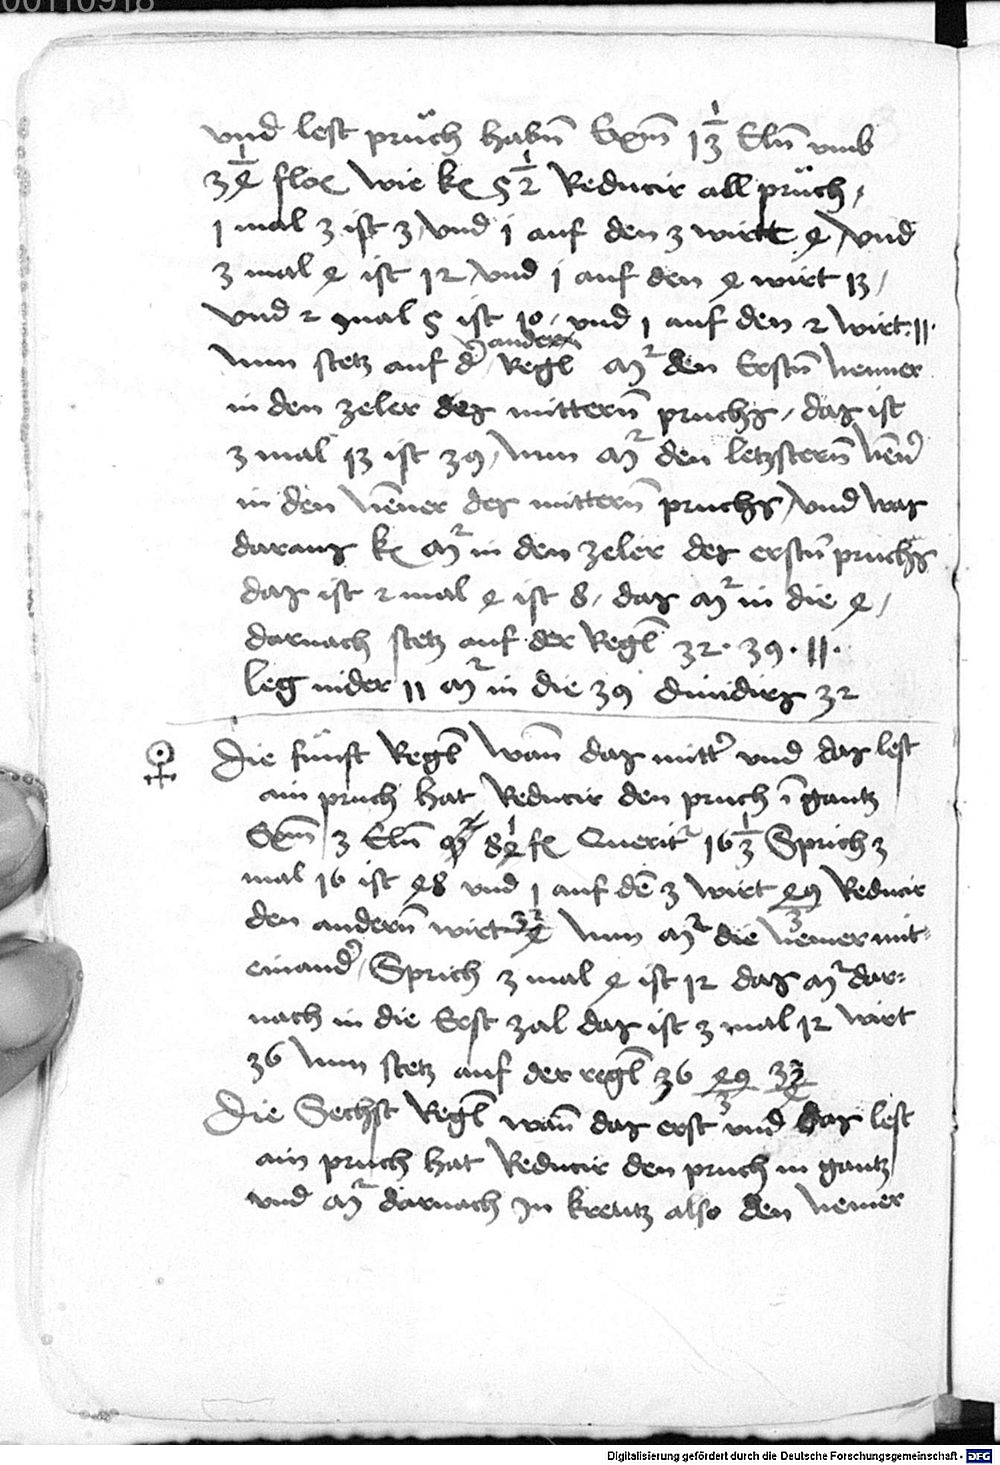 00110918
vnd lest prüch habn̄ Exm̄ 1 1/3 Eln̄ vmb
3 1/4 flor wie kꝭ 5 1/2 Reducir all prüch /
1 mal 3 ist 3 / vnd 1 auf den 3 wirtt 4 / vnd
3 mal 4 ist 12 / vnd 1 auf den 4 wirt 13 /
vnd 2 mal 5 ist 10 / vnd 1 auf den 2 wirt 11 ·
andern
Nun setz auf d' Regl̄ m̄ den Erstn̄ Nenner
in den zeler des mittern̄ pruchs / das ist
3 mal 13 ist 39 / Nun m̄ den letzstern̄ Nen̄'
in den Nen̄er des mittern̄ pruchs / vnd was
daraus kꝭ m̄ in den zeler des erstn̄ pruchs
das ist 2 mal 4 ist 8 / das m̄ in die 4 /
darnach setz auf der Regl̄ 32 · 39 · 11 ·
leg nider 11 m̄ in die 39 diuidirs 32
Die fünft Regl̄ Wan̄ das mitt' vnd das lest
ain pruch hat Reducir den pruch ī gantz
Exm̄ 3 Eln̄ 8 1/4 fꝭ Querit' 16 1/3 Sprich 3
mal 16 ist 48 vnd 1 auf dē 3 wirt 49/3 Reducir
den andern̄ wirt 32/4 Nun m̄ die Nenner mit-
einand' / Sprich 3 mal 4 ist 12 das m̄ dar=
nach in die Erst zal das ist 3 mal 12 wirt
36 Nun setz auf der regl̄ 36 49/3 33/4
Die Sechst Regl̄ wan̄ das erst vnd das lest
ain pruch hat Reducir den pruch in gantz
vnd m̄ darnach In kreutz also den Nenner
Digitalisierung gefördert durch die Deutsche Forschungsgemeinschaft - DFG